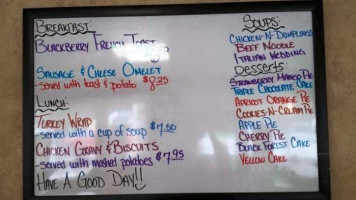 BREAKFAST:
BLACKBERRY FRENCH TOAST
SAUSAGE & CHEESE OMELET
-served with toast & potato $8.25
LUNCH:
TURKEY WRAP
-served with a cup of soup $7.50
CHICKEN GRAVY & BISCUITS
-served with mashed potatoes $7.95
HAVE A GOOD DAY!!
SOUPS:
CHICKEN-N-DUMPLINGS
BEEF NOODLE
ITALIAN WEDDING
DESSERTS:
STRAWBERRY MANGO PIE
TRIPLE CHOCOLATE CAKE
APRICOT ORANGE PIE
COOKIES-N-CREAM PIE
APPLE PIE
CHERRY PIE
BLACK FOREST CAKE
YELLOW CAKE